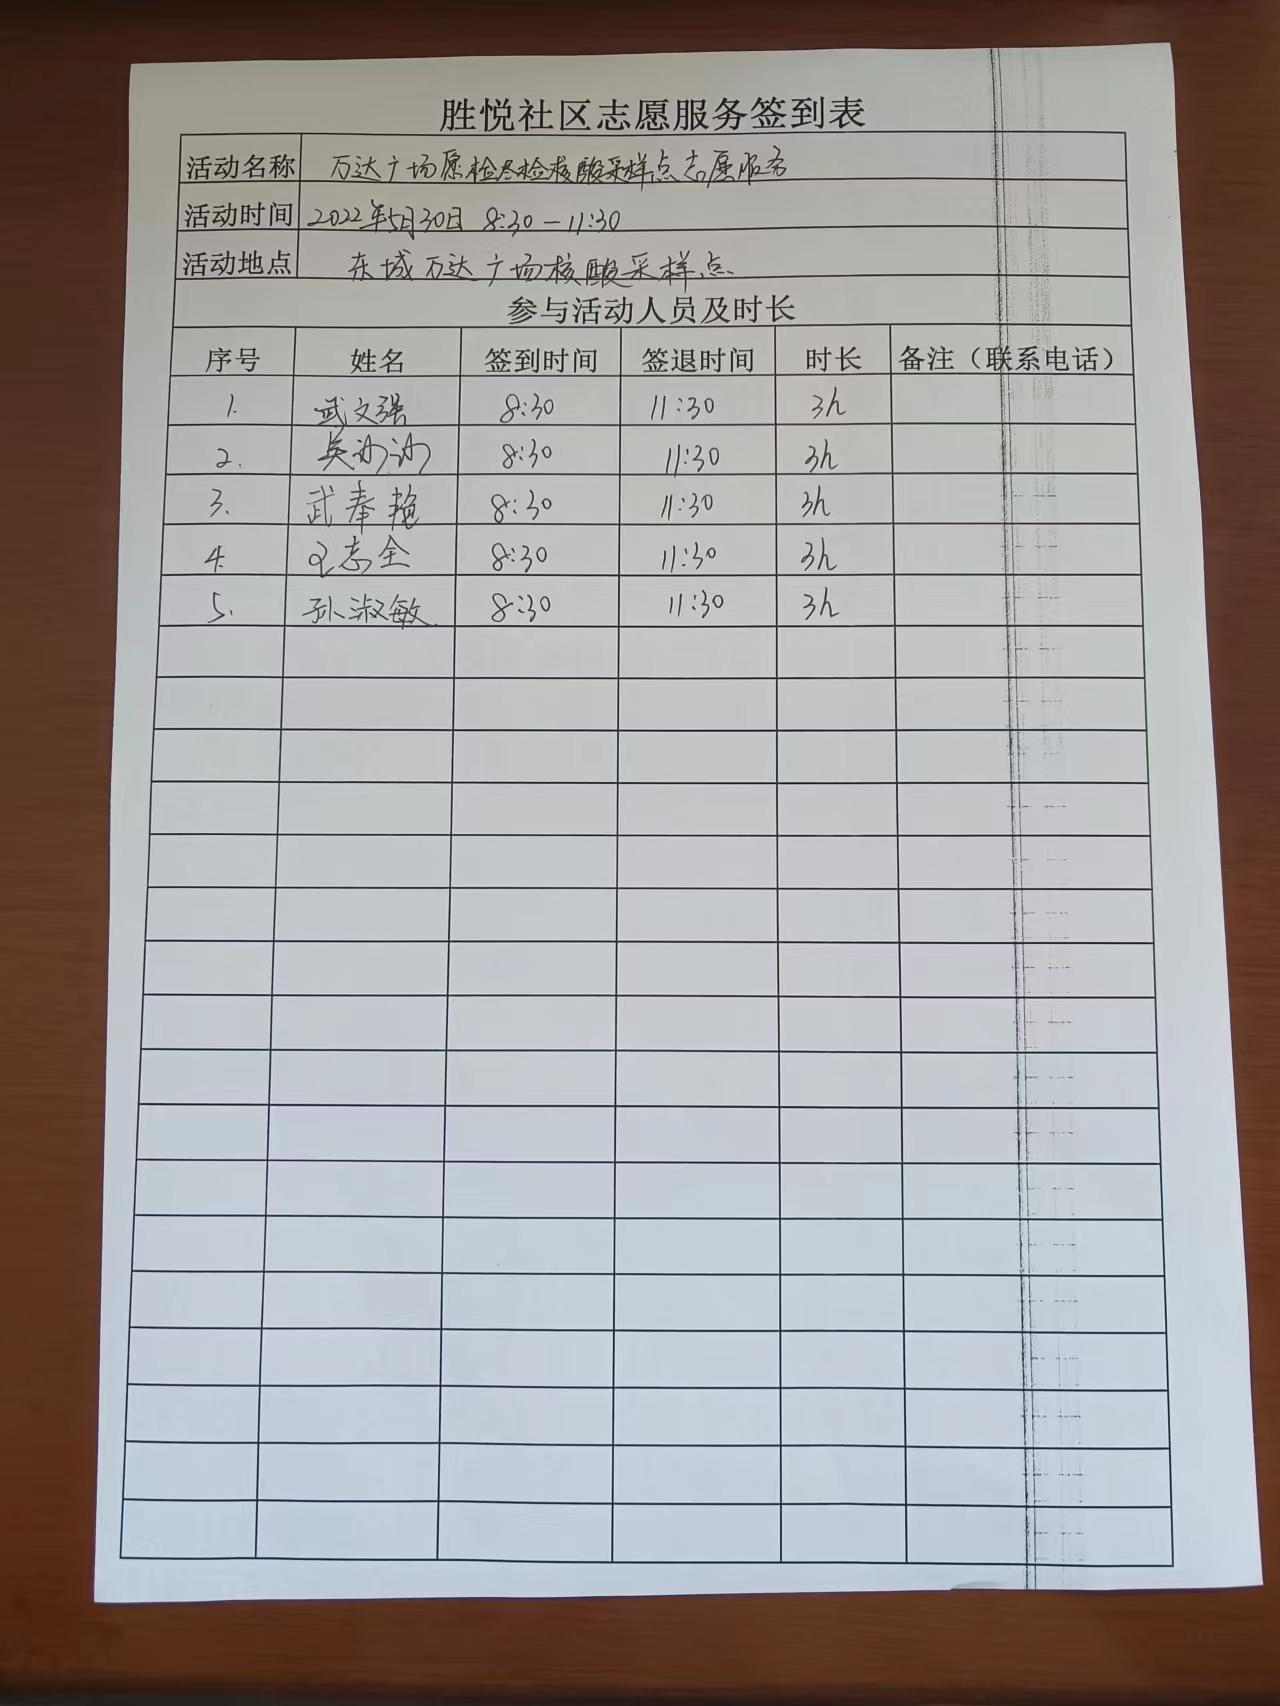 胜悦社区志愿服务签到表
活动名称 万达广场愿检尽检核酸采样点志愿服务
活动时间 2022年5月30日 8:30-11:30
活动地点 东城万达广场核酸采样点
参与活动人员及时长
序号 姓名 签到时间 签退时间 时长 备注（联系电话）
1. 武文强 8:30 11:30 3h
2. 吴沙沙 8:30 11:30 3h
3. 武奉艳 8:30 11:30 3h
4. 王志全 8:30 11:30 3h
5. 孙淑敏 8:30 11:30 3h